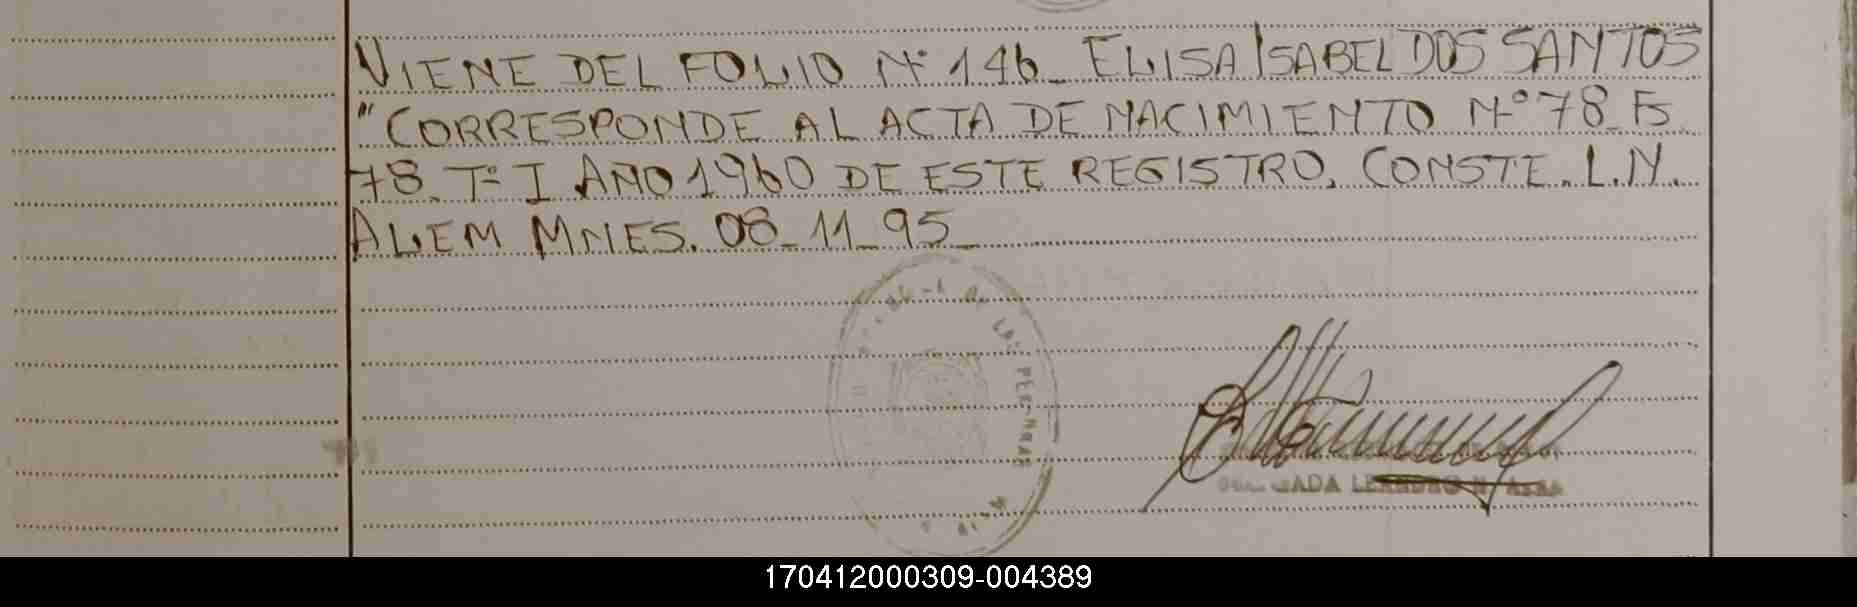 VIENE DEL FOLIO Nº 146_ ELISA ISABEL DOS SANTOS
"CORRESPONDE AL ACTA DE NACIMIENTO Nº 78_ Fs
78. Tº I AÑO 1960 DE ESTE REGISTRO. CONSTE. L.N.
ALEM MNES. 08_11_95_
DE LAS PER
ADA LEANDRO N. ALEM
170412000309-004389